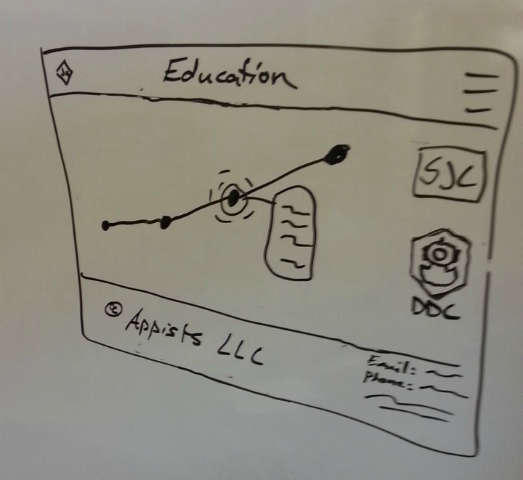 Education
SJC
DDC
© Appists LLC
Email:
Phone: